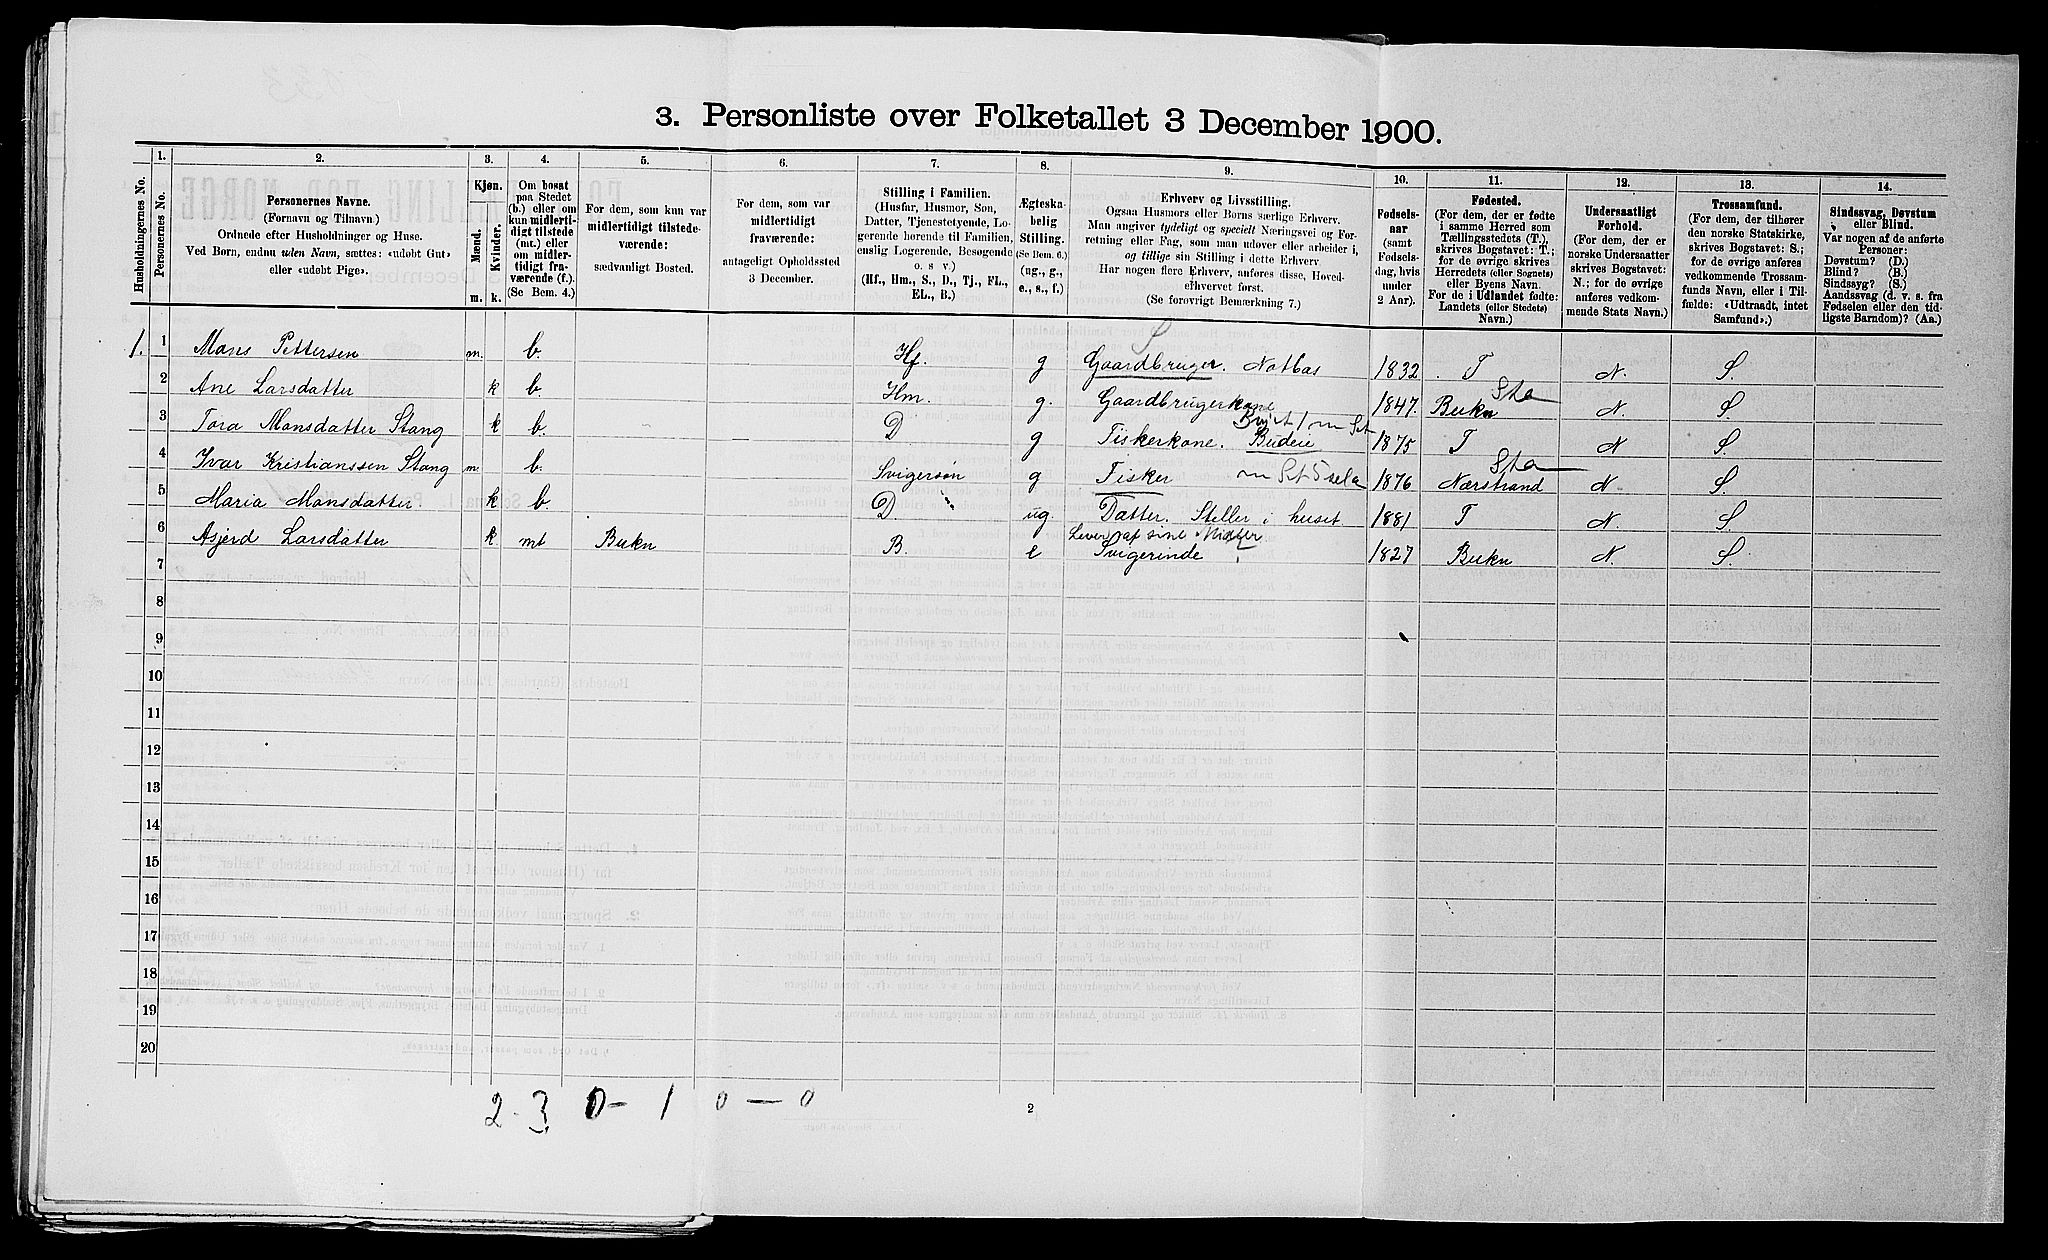 3. Personliste over Folketallet 3 December 1900.
Husholdningernes No.
1.
Personernes No.
2.
Personernes Navne.
(Fornavn og Tilnavn.)
Ordnede efter Husholdninger og Huse.
Ved Børn, endnu uden Navn, sættes: «udøbt Gut»
eller «udøbt Pige».
3.
Kjøn.
Mænd.
Kvinder.
m. k.
4.
Om bosat
paa Stedet
(b.) eller om
kun midlerti-
digt tilstede
(mt.) eller
om midler-
tidigt fra-
værende (f.).
(Se Bem. 4.)
5.
For dem, som kun var
midlertidigt tilstede-
værende:
sædvanligt Bosted.
6.
For dem, som var
midlertidigt
fraværende:
antageligt Opholdssted
3 December.
7.
Stilling i Familien.
(Husfar, Husmor, Søn,
Datter, Tjenestetyende, Lo-
gerende hørende til Familien,
enslig Logerende, Besøgende
o. s v.)
(Hf., Hm., S., D., Tj., FL.,
EL., B.)
8.
Ægteska-
belig
Stilling.
(Se Bem. 6.)
(ug., g.,
e., s., f.)
9.
Erhverv og Livsstilling.
Ogsaa Husmors eller Børns særlige Erhverv.
Man angiver tydeligt og specielt Næringsvei og For-
retning eller Fag, som man udøver eller arbeider i,
og tillige sin Stilling i dette Erhverv.
Har nogen flere Erhverv, anføres disse, Hoved-
erhvervet først.
(Se forøvrigt Bemærkning 7.)
10.
Fødsels-
aar
(samt
Fødsels-
dag, hvis
under
2 Aar).
11.
Fødested.
(For dem, der er fødte
i samme Herred som
Tællingsstedets (T.),
skrives Bogstavet: T.;
for de øvrige skrives
Herredets (eller Sognets)
eller Byens Navn.
For de i Udlandet fødte:
Landets (eller Stedets)
Navn.)
12.
Undersaatligt
Forhold.
(For dem, der er
norske Undersaatter
skrives Bogstavet:
N.; for de øvrige
anføres vedkom-
mende Stats Navn.)
13.
Trossamfund.
(For dem, der tilhører
den norske Statskirke,
skrives Bogstavet: S.;
for de øvrige anføres
vedkommende Trossam-
funds Navn, eller i Til-
fælde: «Udtraadt, intet
Samfund».)
14.
Sindssvag, Døvstum
eller Blind.
Var nogen af de anførte
Personer:
Døvstum? (D.)
Blind? (B.)
Sindssyg? (S.)
Aandssvag (d. v. s. fra
Fødselen eller den tid-
ligste Barndom)? (Aa.)
1. 1 Mons Pettersen m. b. Hf. g Gaardbruger. Notbas 1832 T N. S.
2 Ane Larsdatter k b. Hm. g. Gaardbrugerkone 1847. Bukn Sta N. S.
3 Tora Monsdatter Stang k b. D g Fiskerkone. Budeie 1875 T N S.
4 Ivar Kristianssen Stang m. b. Svigersøn g Fisker 1876 Nærstrand Sta N. S.
5 Maria Monsdatter. k b. D ug. Datter. Steller i huset 1881 T N. S
6 Asjerd Larsdatter k mt Bukn B. e Lever af sine Midler
Svigerinde 1827 Bukn N. S.
7
8
9
10
11
12
13
14
15
16
17
18
19
20
2 - 3 0 - 1 0 - 0
2